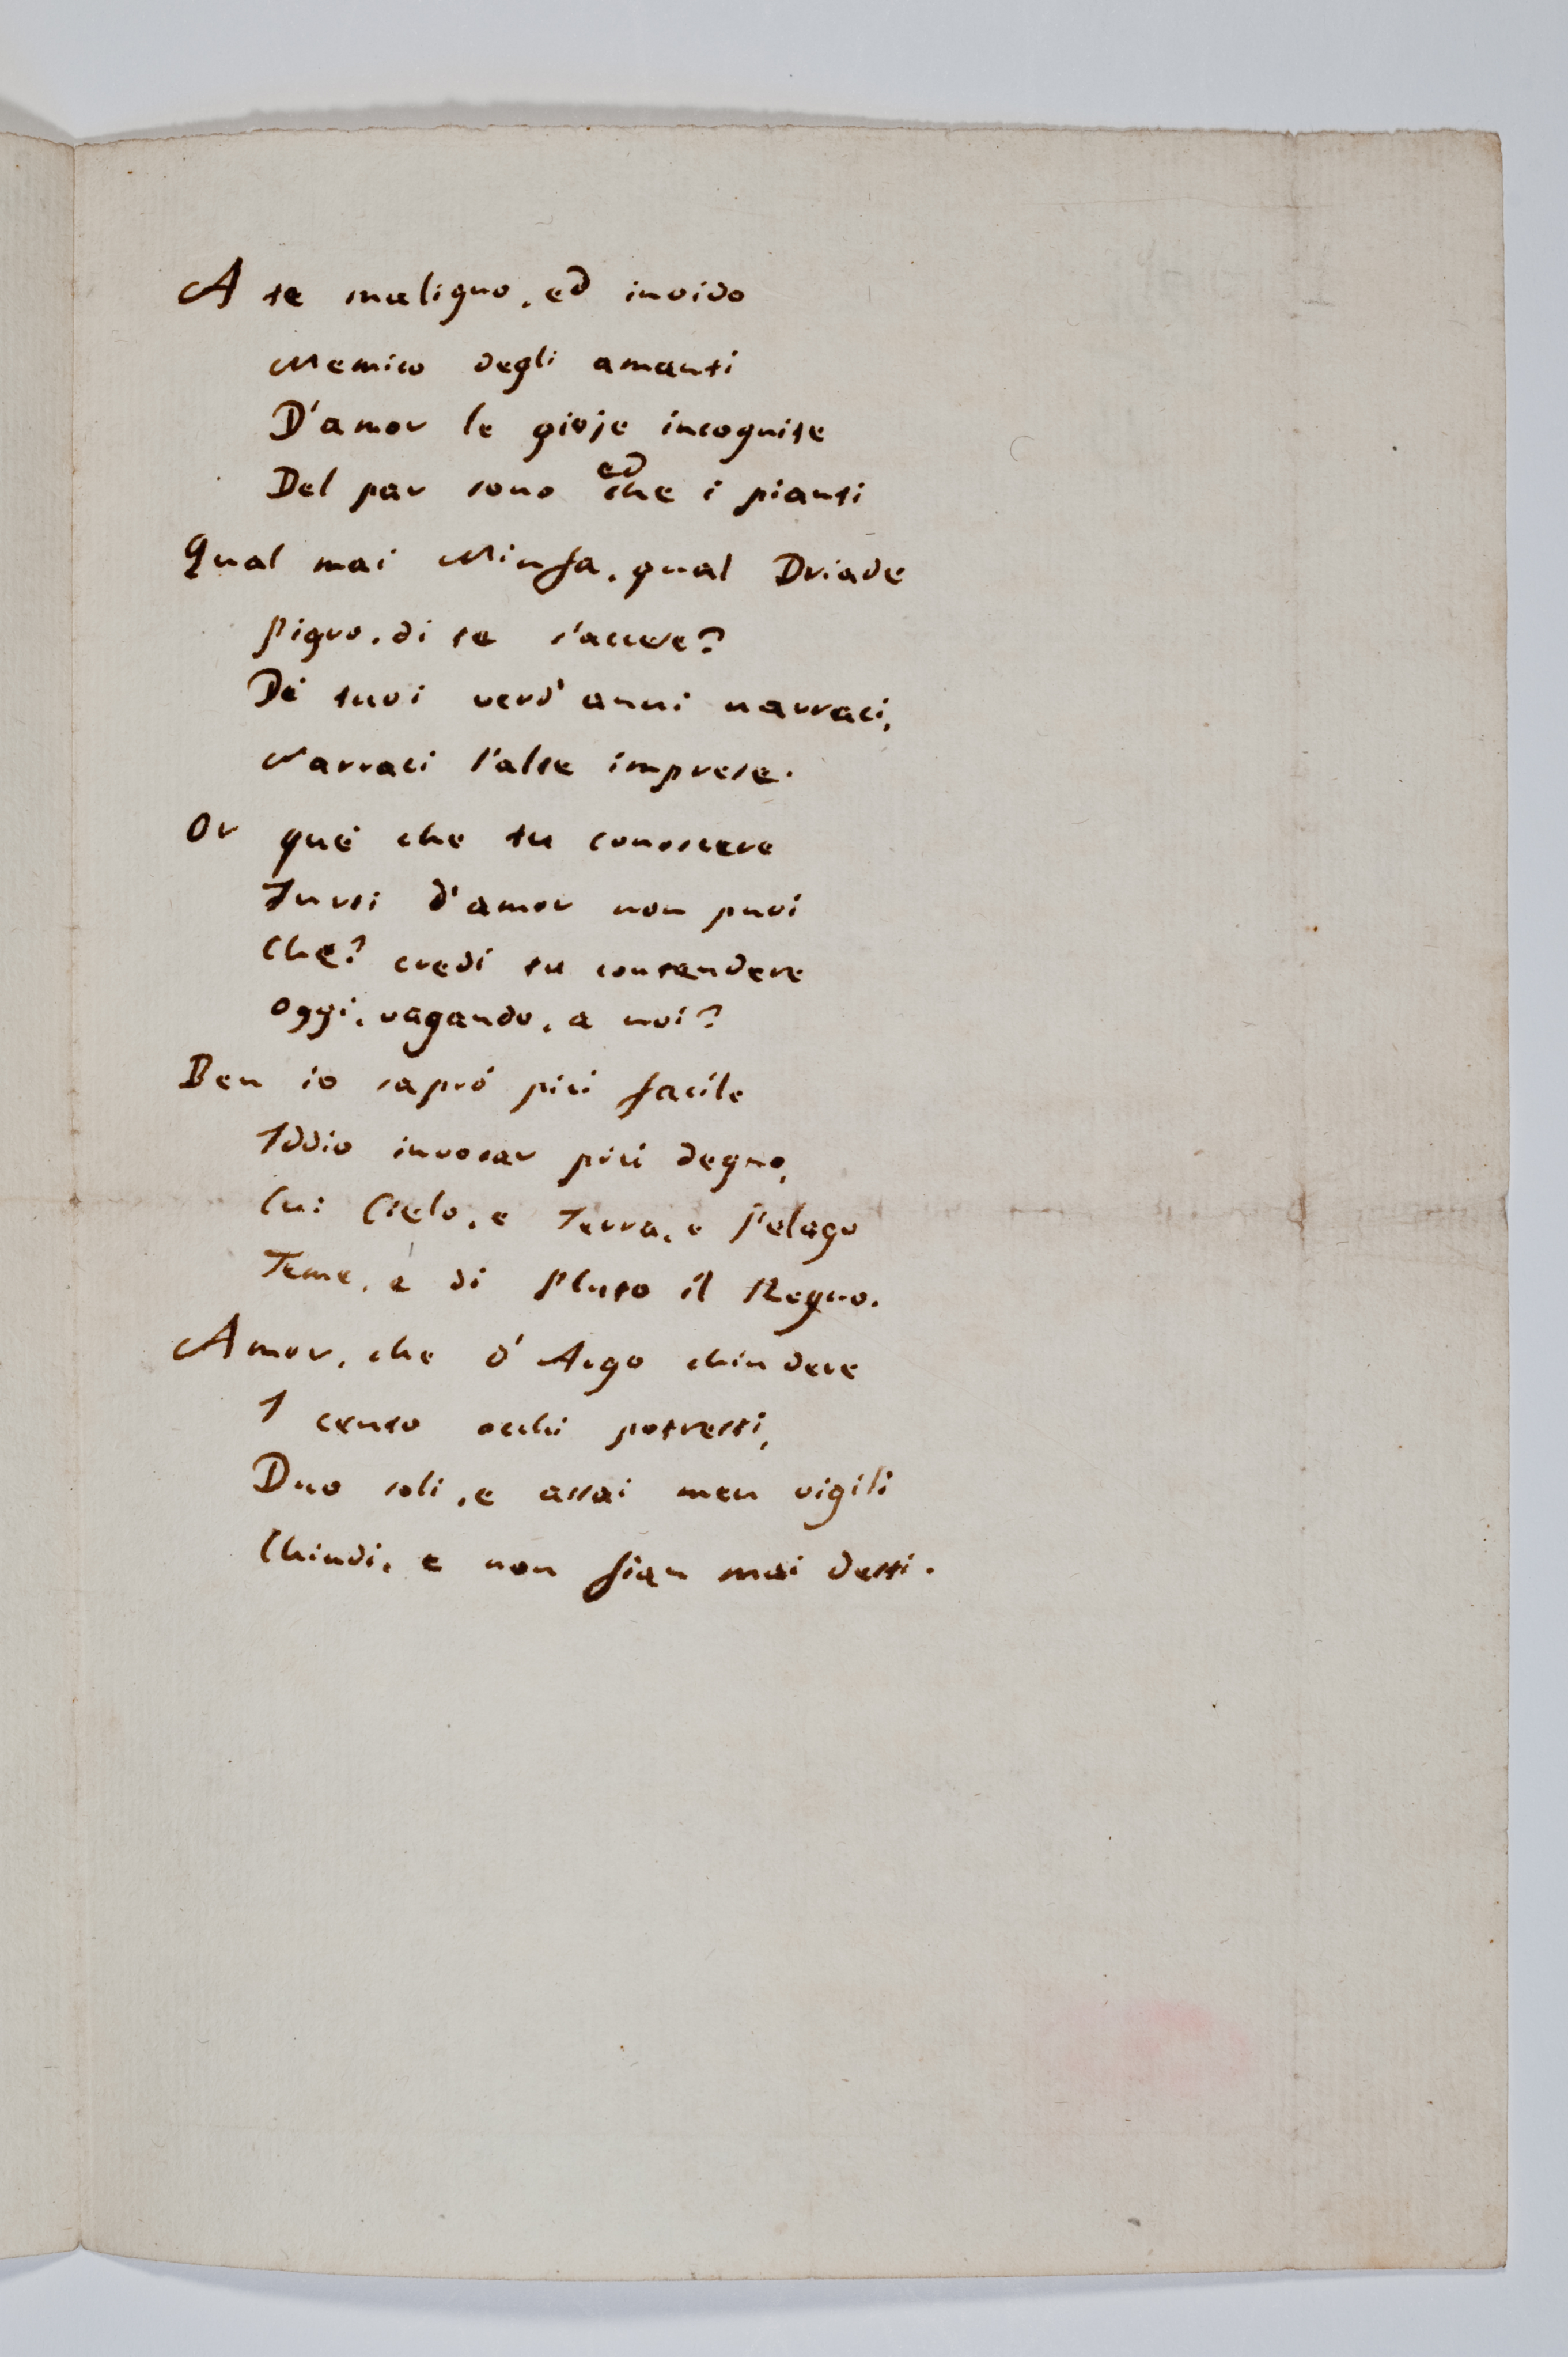 A te maligno, ed invido
Nemico degli amanti
D'amor le gioje incognite
Del par sono ed che i pianti
Qual mai Ninfa, qual Driade
Pigro, di te s'accese?
Di tuoi verd' anni narraci,
Narraci l'alte imprese.
Or què che tu conoscere
Furti d'amor non puoi
Che? credi tu contendere
Oggi, vagando, a noi?
Ben io saprò più facile
Iddio invocar più degno,
Cui Cielo, e Terra, e Pelago
Teme, e di Pluto il Regno.
Amor, che d' Argo chiudere
I cento occhi potresti,
Duo soli, e assai men vigili
Chiudi, e non fian mai desti.